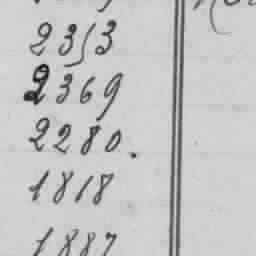 2353
2369
2280.
1818
1887